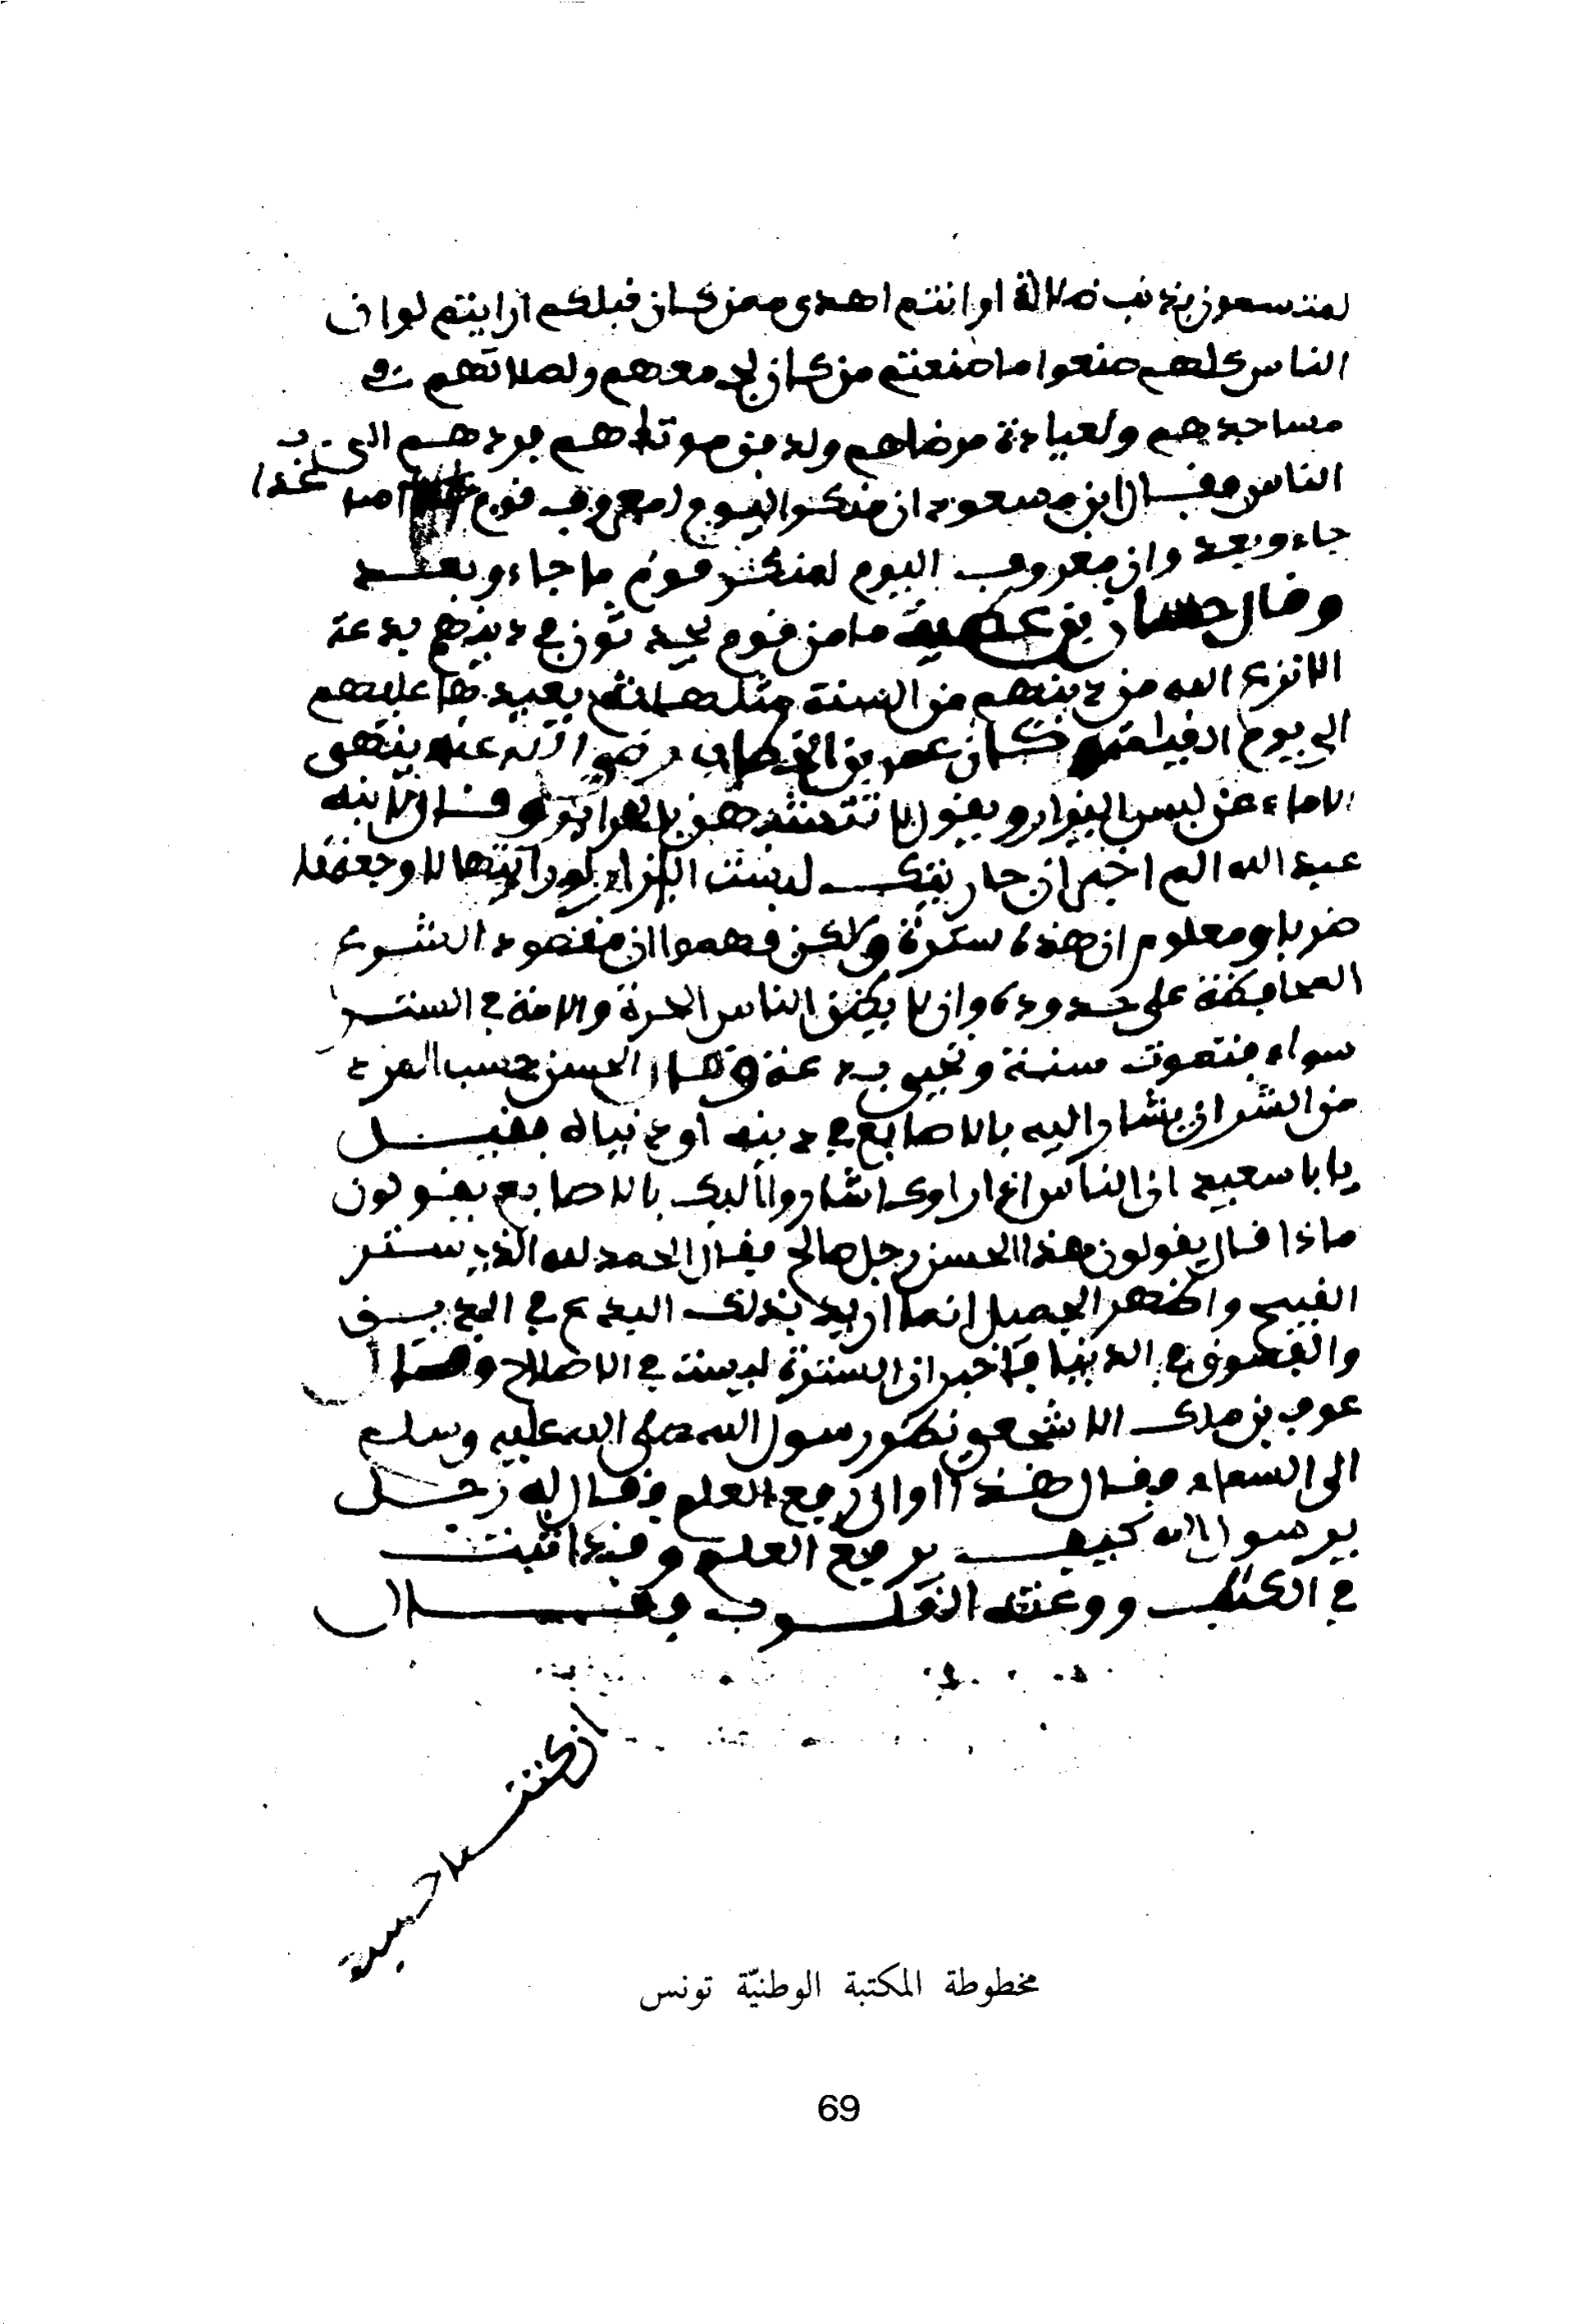 لمتمسعون بذنب ضلالة او انتم اهدى ممن كان قبلكم ارايتم لو ان
الناس كلهم صنعوا ما صنعتم من كان لجمعهم ولصلاتهم في
مساجدهم ولعيادة مرضاهم ولدفن موتاهم فردهم الى
الناس فقال ابن مسعود ان منكر اليوم لمعروف قوم ما
جاءو بعد وان معروف اليوم لمنكر قوم ما جاءو بعد
وقال حسان بن عطية ما من قوم يحدثون في دينهم بدعة
الا نزع الله من دينهم من السنة مثلها ثم يعيدها عليهم
الى يوم القيامة وكان عمر بن الخطاب رضي الله عنه ينهى
الاماء عن لبس الازار ويقول لا تتشبهن بالحراير وقال لابنه
عبد الله الم اخبر ان جاريتك لبست الازار لو رايتها لاوجعتها
ضربا ومعلوم ان هذه سترة ولكن فهموا ان مقصود الشرع
المحافظة على حدوده وان لا يظن الناس الحرة والامة في الستر
سواء فتموت سنة وتحيى بدعة وقال الحسن حسب المرء
من الشر ان يشار اليه بالاصابع في دينه او دنياه فقيل
يابا سعيد ان الناس اذا راوك اشاروا اليك بالاصابع يقولون
ماذا قال يقولون هذا الحسن رجل صالح فقال الحمد لله الذي ستر
القبيح واظهر الجميل انما اريد بذلك البدع في الدين
والفسوق في الدنيا فاخبر ان السترة ليست في الاصلاح وقال
عوف بن ملك الاشجعي نظر رسول الله صلى الله عليه وسلم
الى السماء فقال هذا اوان رفع العلم فقال له رجل
يرسول الله كيف يرفع العلم وقد اثبت
في الكتب ووعته القلوب فقال
ان كنت لاحسبك
مخطوطة المكتبة الوطنيّة تونس
69